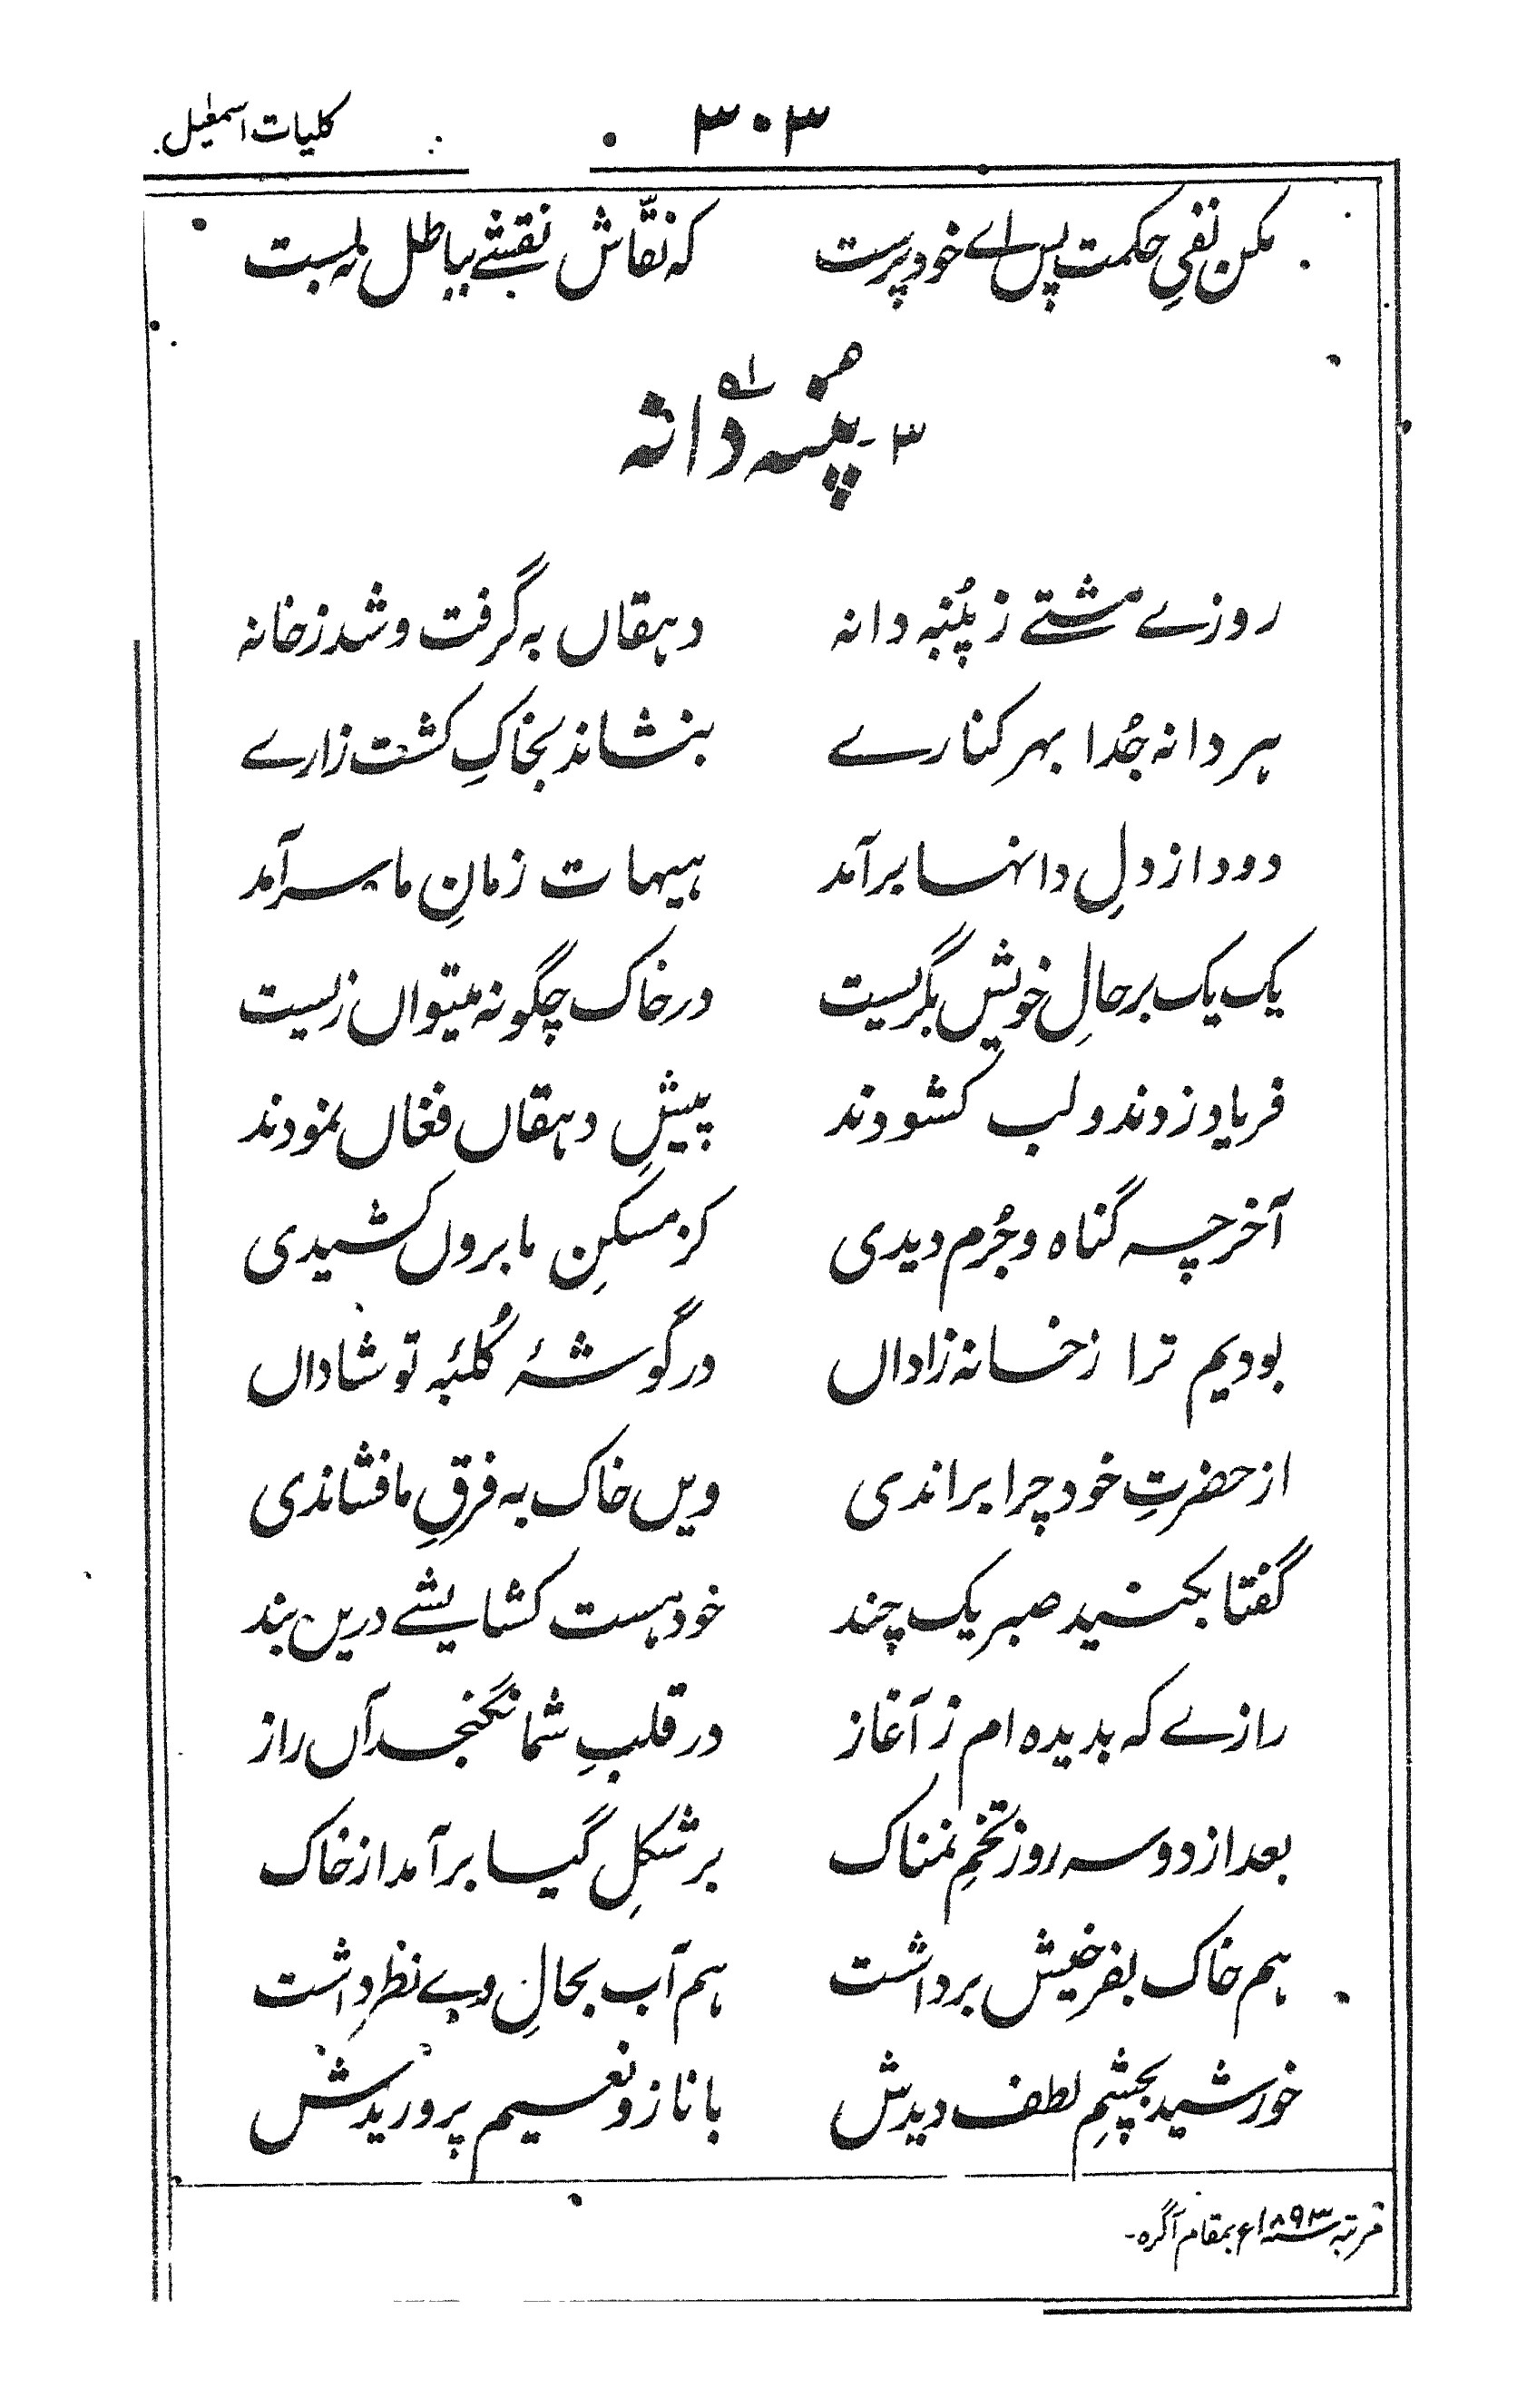 ۳۰۳ کلیات اسمٰعیل
مکن نفیِ حکمت پس اے خود پرست کہ نقّاش نقشے بباطل نہ بست
۳۔ پُنبہ دانہ
روزے مشتے ز پُنبہ دانہ دہقاں بہ گرفت و شد ز خانہ
ہر دانہ جُدا بہر کنارے بنشاند بخاکِ کشت زارے
دود از دلِ دانہا برآمد ہیہات زمانِ ما سرآمد
یک یک بر حالِ خویش بگریست در خاک چگونہ میتواں زیست
فریاد زدند و لب کشودند پیشِ دہقاں فغاں نمودند
آخر چہ گناہ و جُرم دیدی کز مسکنِ ما بروں کشیدی
بودیم ترا ز خانہ زاداں در گوشۂ کُلبۂ تو شاداں
از حضرتِ خود چرا براندی ویں خاک بہ فرقِ ما فشاندی
گفتا بکنید صبر یک چند خود ہست کشایشے دریں بند
رازے کہ بدیدہ ام ز آغاز در قلبِ شما نگنجد آں راز
بعد از دو سہ روز تخمِ نمناک بر شکلِ گیا برآمد از خاک
ہم خاک بفر خیش برداشت ہم آب بحالِ وے نظر داشت
خورشید بچشمِ لطف دیدش با ناز و نعیم پروریدش
مرتبہ سنہ ۱۸۹۳ء بمقام آگرہ۔